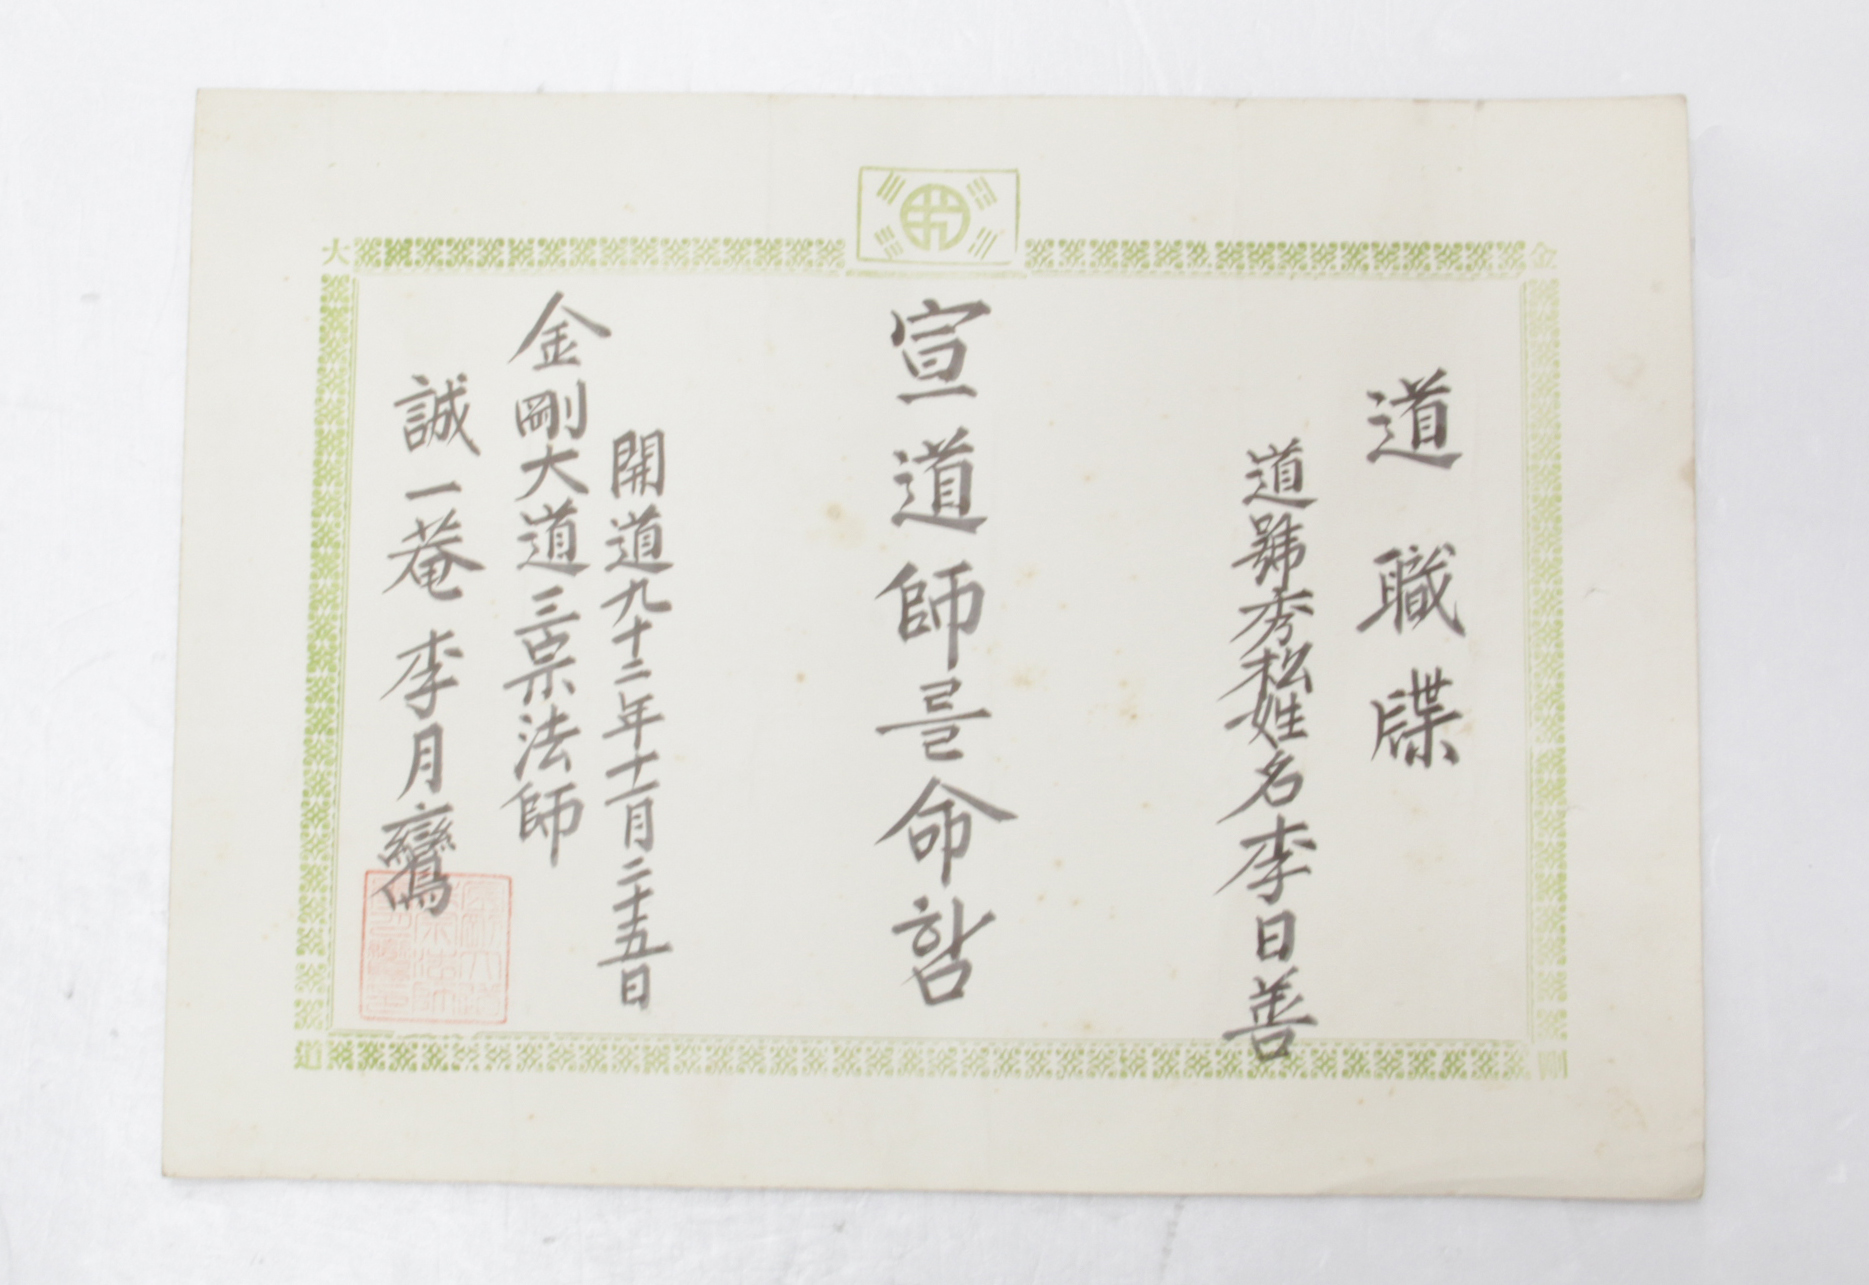 金
剛
大
道
道職牒
道號秀松姓名李日善
宣道師를命함
開道九十二年十一月二十五日
金剛大道三宗法師
誠一菴李月鸞